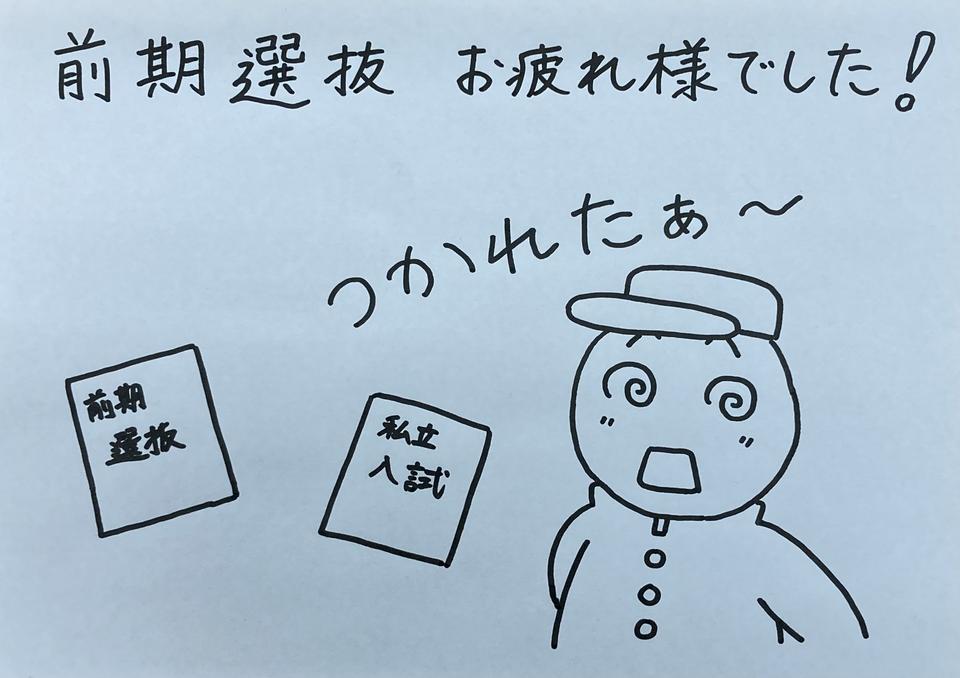 前期選抜 お疲れ様でした!
つかれたぁ〜
前期
選抜
私立
入試